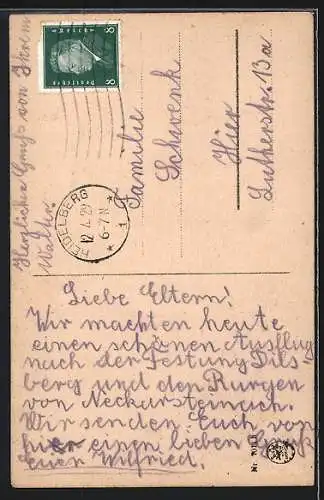 Liebe Eltern!
Wir machten heute
einen schönen Ausflug
nach der Festung Dils-
berg und den Burgen
von Neckarsteinach.
Wir senden Euch von
hier einen lieben Gruß
Euer Wilfried.
Herzlicher Gruß von Ihrem
Walter.
Familie
Schwenk
Hier
Lutherstr. 13a
HEIDELBERG
12.4.29
6-7 N
* 1 *
8 Reich 8
Deutsches
Nr.